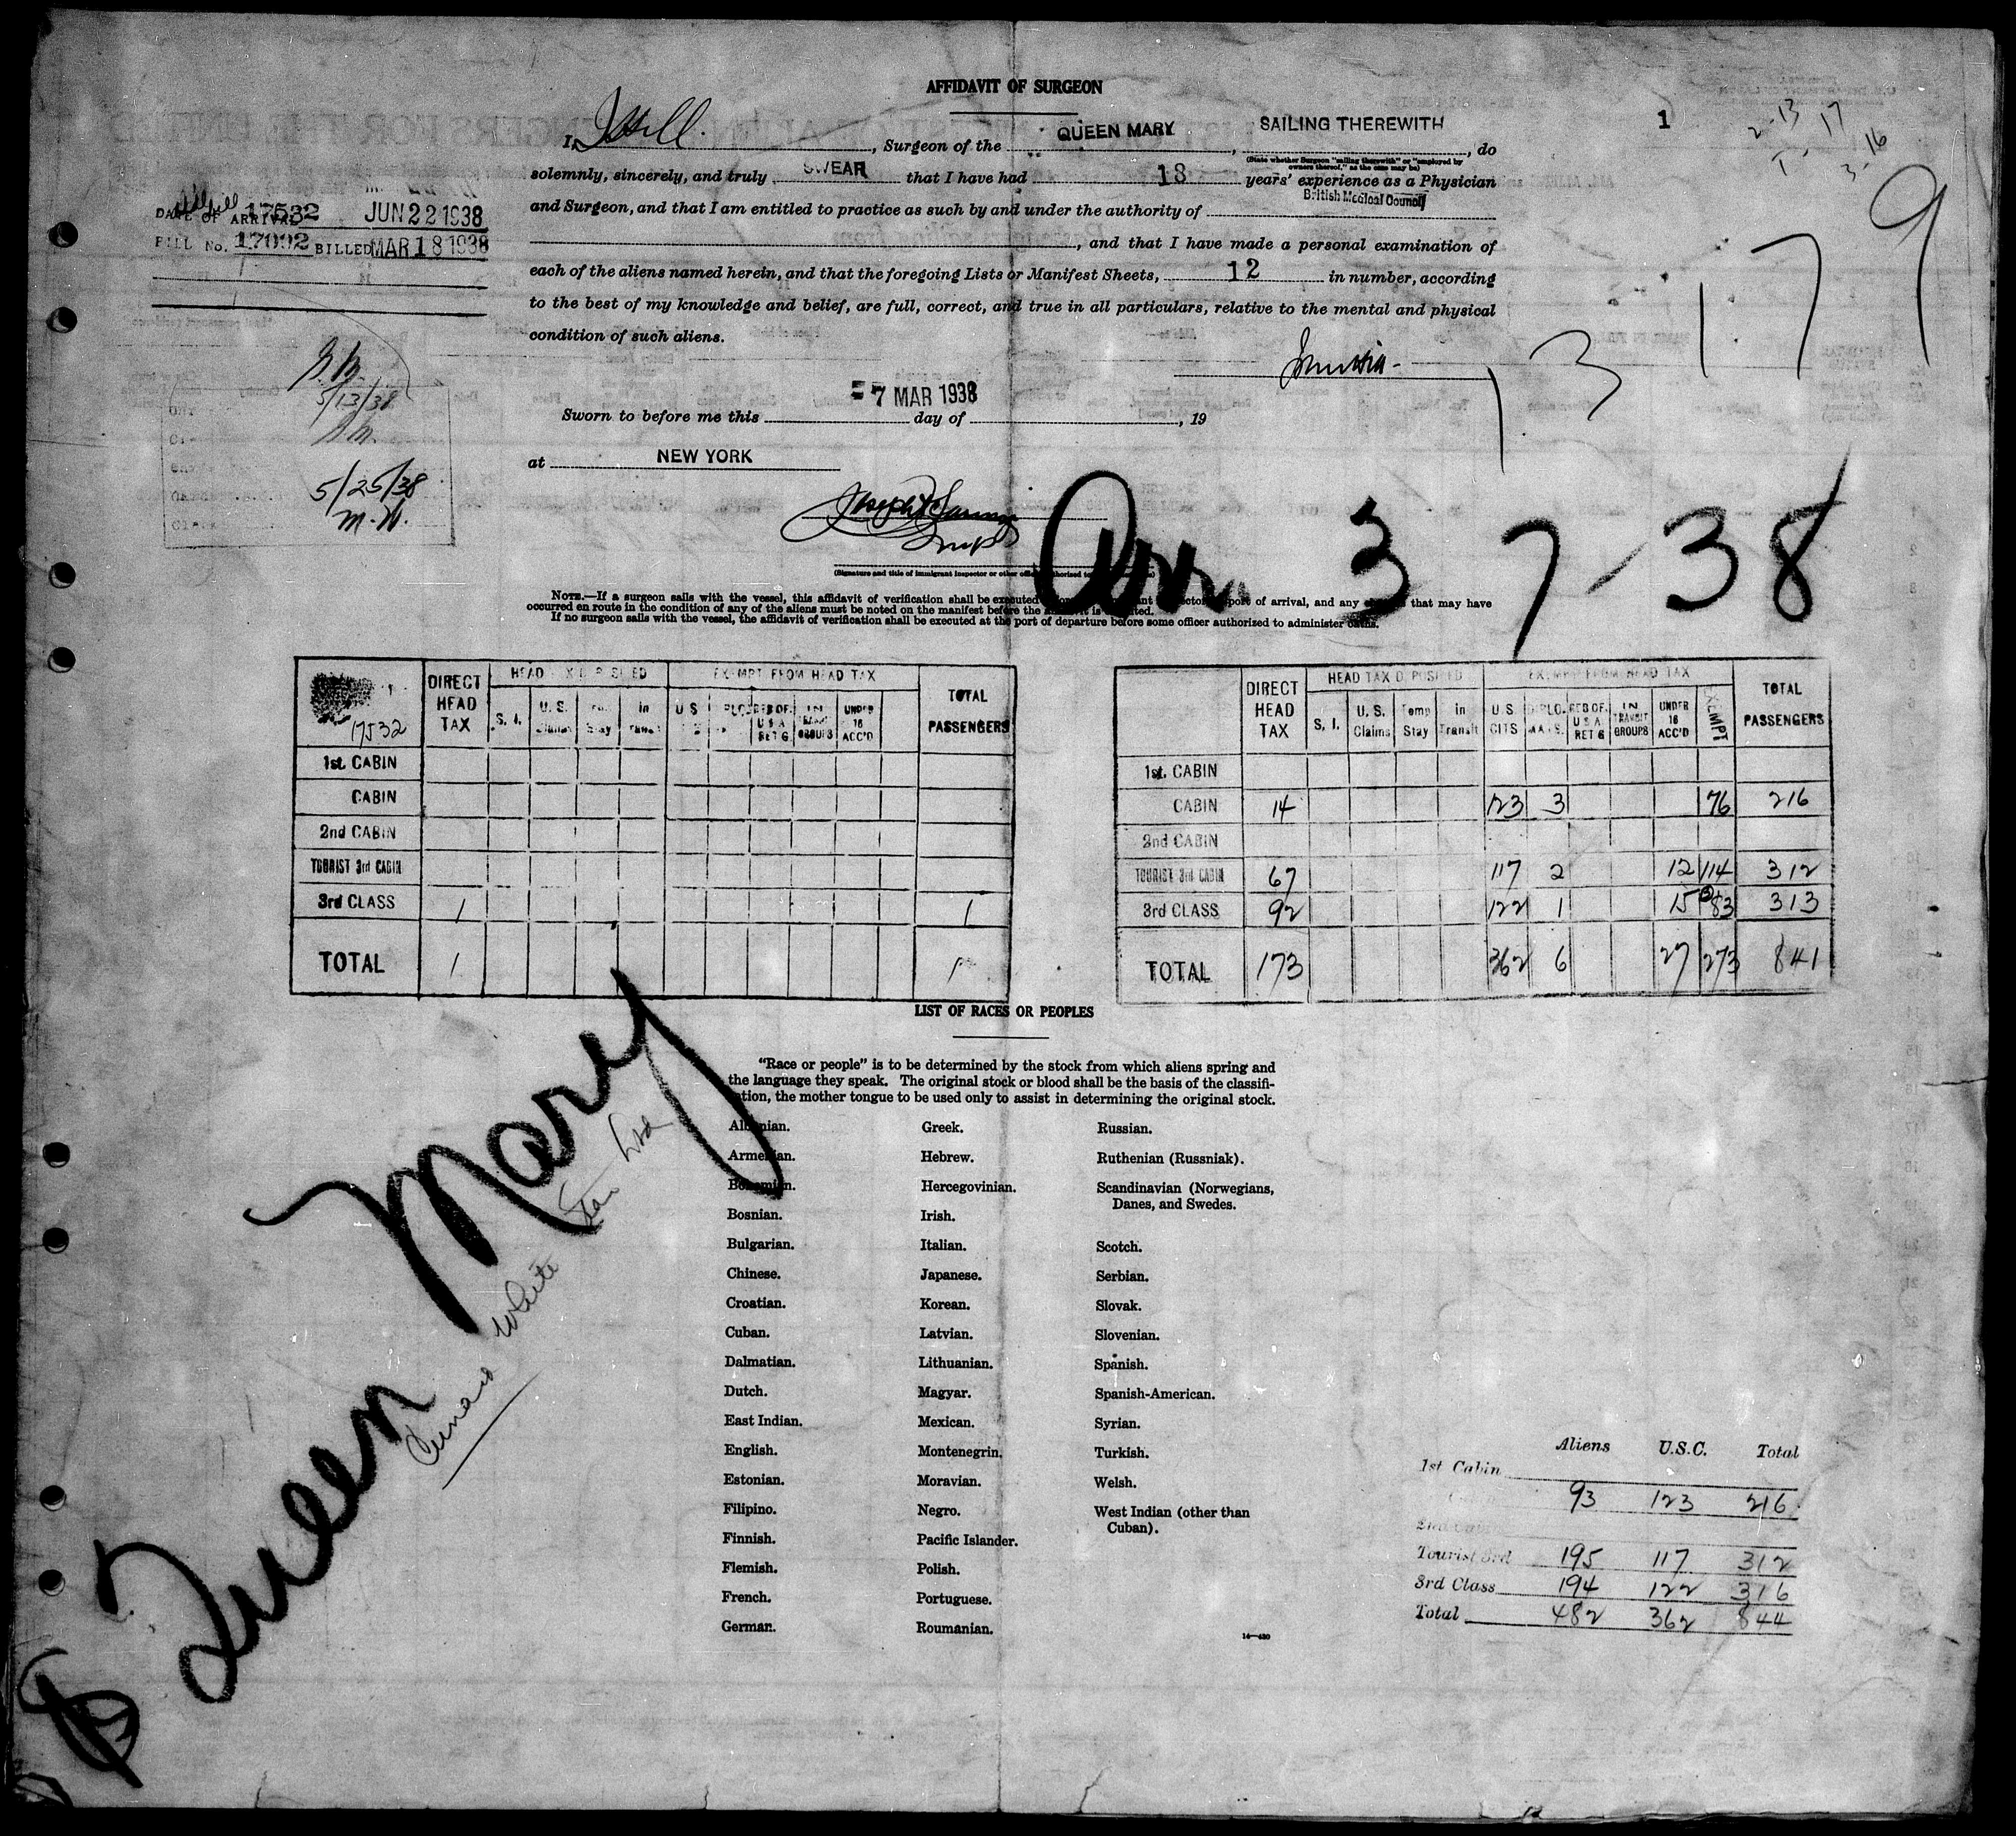 AFFIDAVIT OF SURGEON
1
2-13 17
1- 3-16
I, , Surgeon of the QUEEN MARY, SAILING THEREWITH, do
(State whether Surgeon "sailing therewith" or "employed by owners thereof," as the case may be)
solemnly, sincerely, and truly SWEAR that I have had 18 years' experience as a Physician
and Surgeon, and that I am entitled to practice as such by and under the authority of British Medical Council
, and that I have made a personal examination of
each of the aliens named herein, and that the foregoing Lists or Manifest Sheets, 12 in number, according
to the best of my knowledge and belief, are full, correct, and true in all particulars, relative to the mental and physical
condition of such aliens.
DATE OF ARRIVAL
17532 JUN 22 1938
BILL No. 17092 BILLED MAR 18 1938
1 3 1 7 9
5/13/38
5/25/38
M.W.
Sworn to before me this -7 MAR 1938 day of , 19
at NEW YORK
Arr. 3 7-38
(Signature and title of immigrant inspector or other
NOTE.—If a surgeon sails with the vessel, this affidavit of verification shall be executed port of arrival, and any that may have
occurred en route in the condition of any of the aliens must be noted on the manifest before the
If no surgeon sails with the vessel, the affidavit of verification shall be executed at the port of departure before some officer authorized to administer oaths.
17532
DIRECT HEAD TAX
HEAD
S. I. U. S. In
EXEMPT FROM HEAD TAX
U S UNDER 16 ACC'D
TOTAL PASSENGERS
1st. CABIN
CABIN
2nd CABIN
TOURIST 3rd CABIN
3rd CLASS 1 1
TOTAL 1 1
DIRECT HEAD TAX
HEAD TAX DEPOSITED
S. I. U. S. Claims Temp Stay In Transit
EXEMPT FROM HEAD TAX
U. S. CITS DIPLOMATS RES OF U S A RET G IN TRANSIT GROUPS UNDER 16 ACC'D EXEMPT
TOTAL PASSENGERS
1st. CABIN
CABIN 14 123 3 76 216
2nd CABIN
TOURIST 3rd CABIN 67 117 2 12 114 312
3rd CLASS 92 122 1 15 83 313
TOTAL 173 362 6 27 273 841
LIST OF RACES OR PEOPLES
"Race or people" is to be determined by the stock from which aliens spring and
the language they speak. The original stock or blood shall be the basis of the classifi-
ation, the mother tongue to be used only to assist in determining the original stock.
Albanian.
Armenian.
Bohemian.
Bosnian.
Bulgarian.
Chinese.
Croatian.
Cuban.
Dalmatian.
Dutch.
East Indian.
English.
Estonian.
Filipino.
Finnish.
Flemish.
French.
German.
Greek.
Hebrew.
Hercegovinian.
Irish.
Italian.
Japanese.
Korean.
Latvian.
Lithuanian.
Magyar.
Mexican.
Montenegrin.
Moravian.
Negro.
Pacific Islander.
Polish.
Portuguese.
Roumanian.
Russian.
Ruthenian (Russniak).
Scandinavian (Norwegians,
Danes, and Swedes.
Scotch.
Serbian.
Slovak.
Slovenian.
Spanish.
Spanish-American.
Syrian.
Turkish.
Welsh.
West Indian (other than
Cuban).
14—430
Queen Mary
Cunard White Star Ltd
Aliens U.S.C. Total
1st Cabin
93 123 216
2nd Cabin
Tourist 3rd 195 117 312
3rd Class 194 122 316
Total 482 362 844